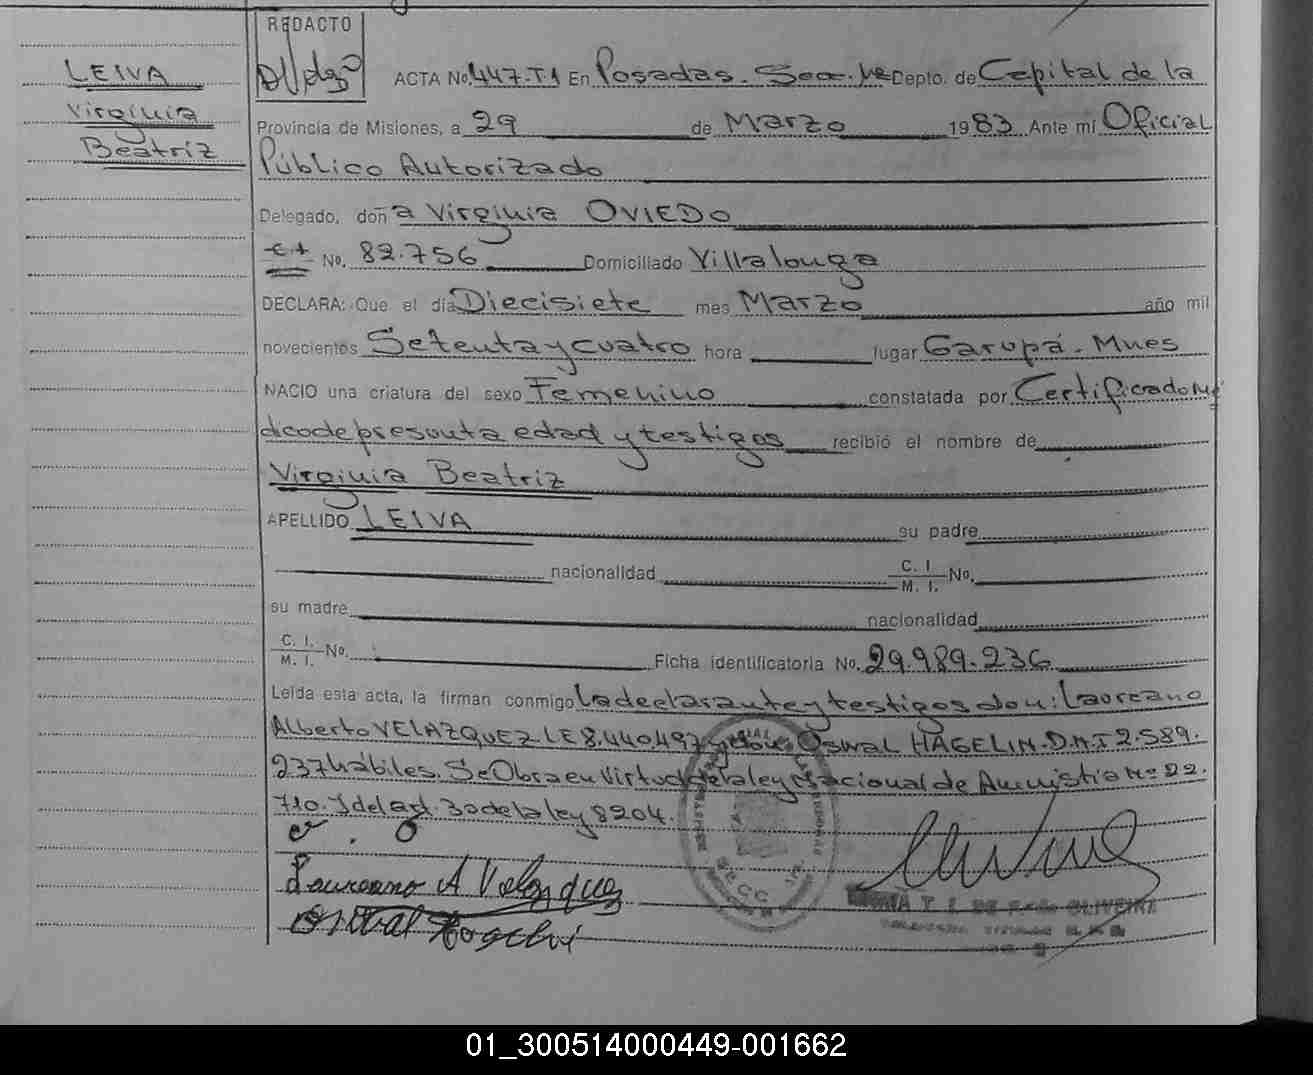 REDACTO
LEIVA
Virginia
Beatriz
ACTA No. 447.T.1 En Posadas. Secc. 1ra Depto. de Capital de la
Provincia de Misiones, a 29 de Marzo 1983 Ante mí Oficial
Público Autorizado
Delegado, doña Virginia OVIEDO
No. 82.756 Domiciliado Villalonga
DECLARA: Que el día Diecisiete mes Marzo año mil
novecientos Setenta y cuatro hora lugar Garupá. Mnes
NACIO una criatura del sexo Femenino constatada por Certificado
de presunta edad y testigos recibió el nombre de
Virginia Beatriz
APELLIDO LEIVA su padre
nacionalidad C. I. M. I. No.
su madre nacionalidad
C. I. M. I. No. Ficha identificatoria No. 29.989.236
Leída esta acta, la firman conmigo la declarante y testigos don: Laureano
Alberto VELAZQUEZ LE 8.440.497 y don Oswal HAGELIN. D.N.I 2.589.
237 hábiles. Se Obra en Virtud de la ley Nacional de Amnistia No 22.
710. Y del art. 30 de la ley 8204.
Laureano A Velazquez
Oswal Hagelin
OLIVEIRA
01_300514000449-001662